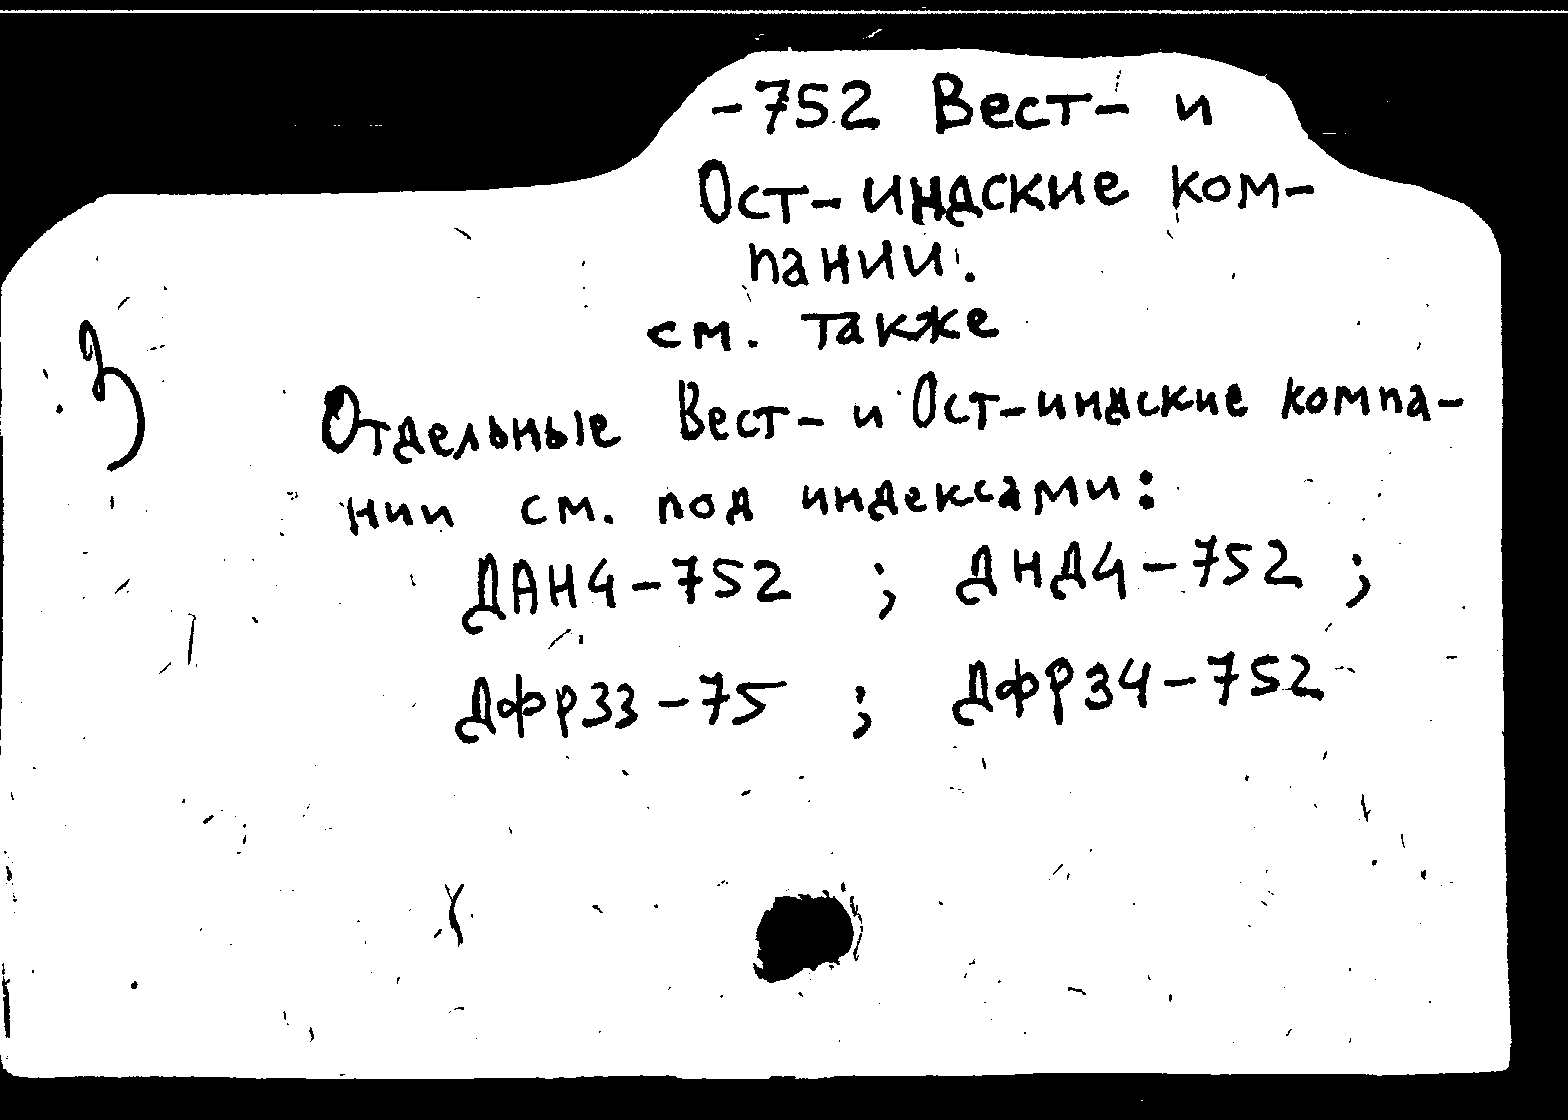 -752 Вест- и
Ост-индские ком-
пании.
см. также
Отдельные Вест- и Ост-индские компа-
нии см. под индексами:
ДАН4-752 ; ДНД4-752 ;
ДФР33-75 ; ДФР34-752